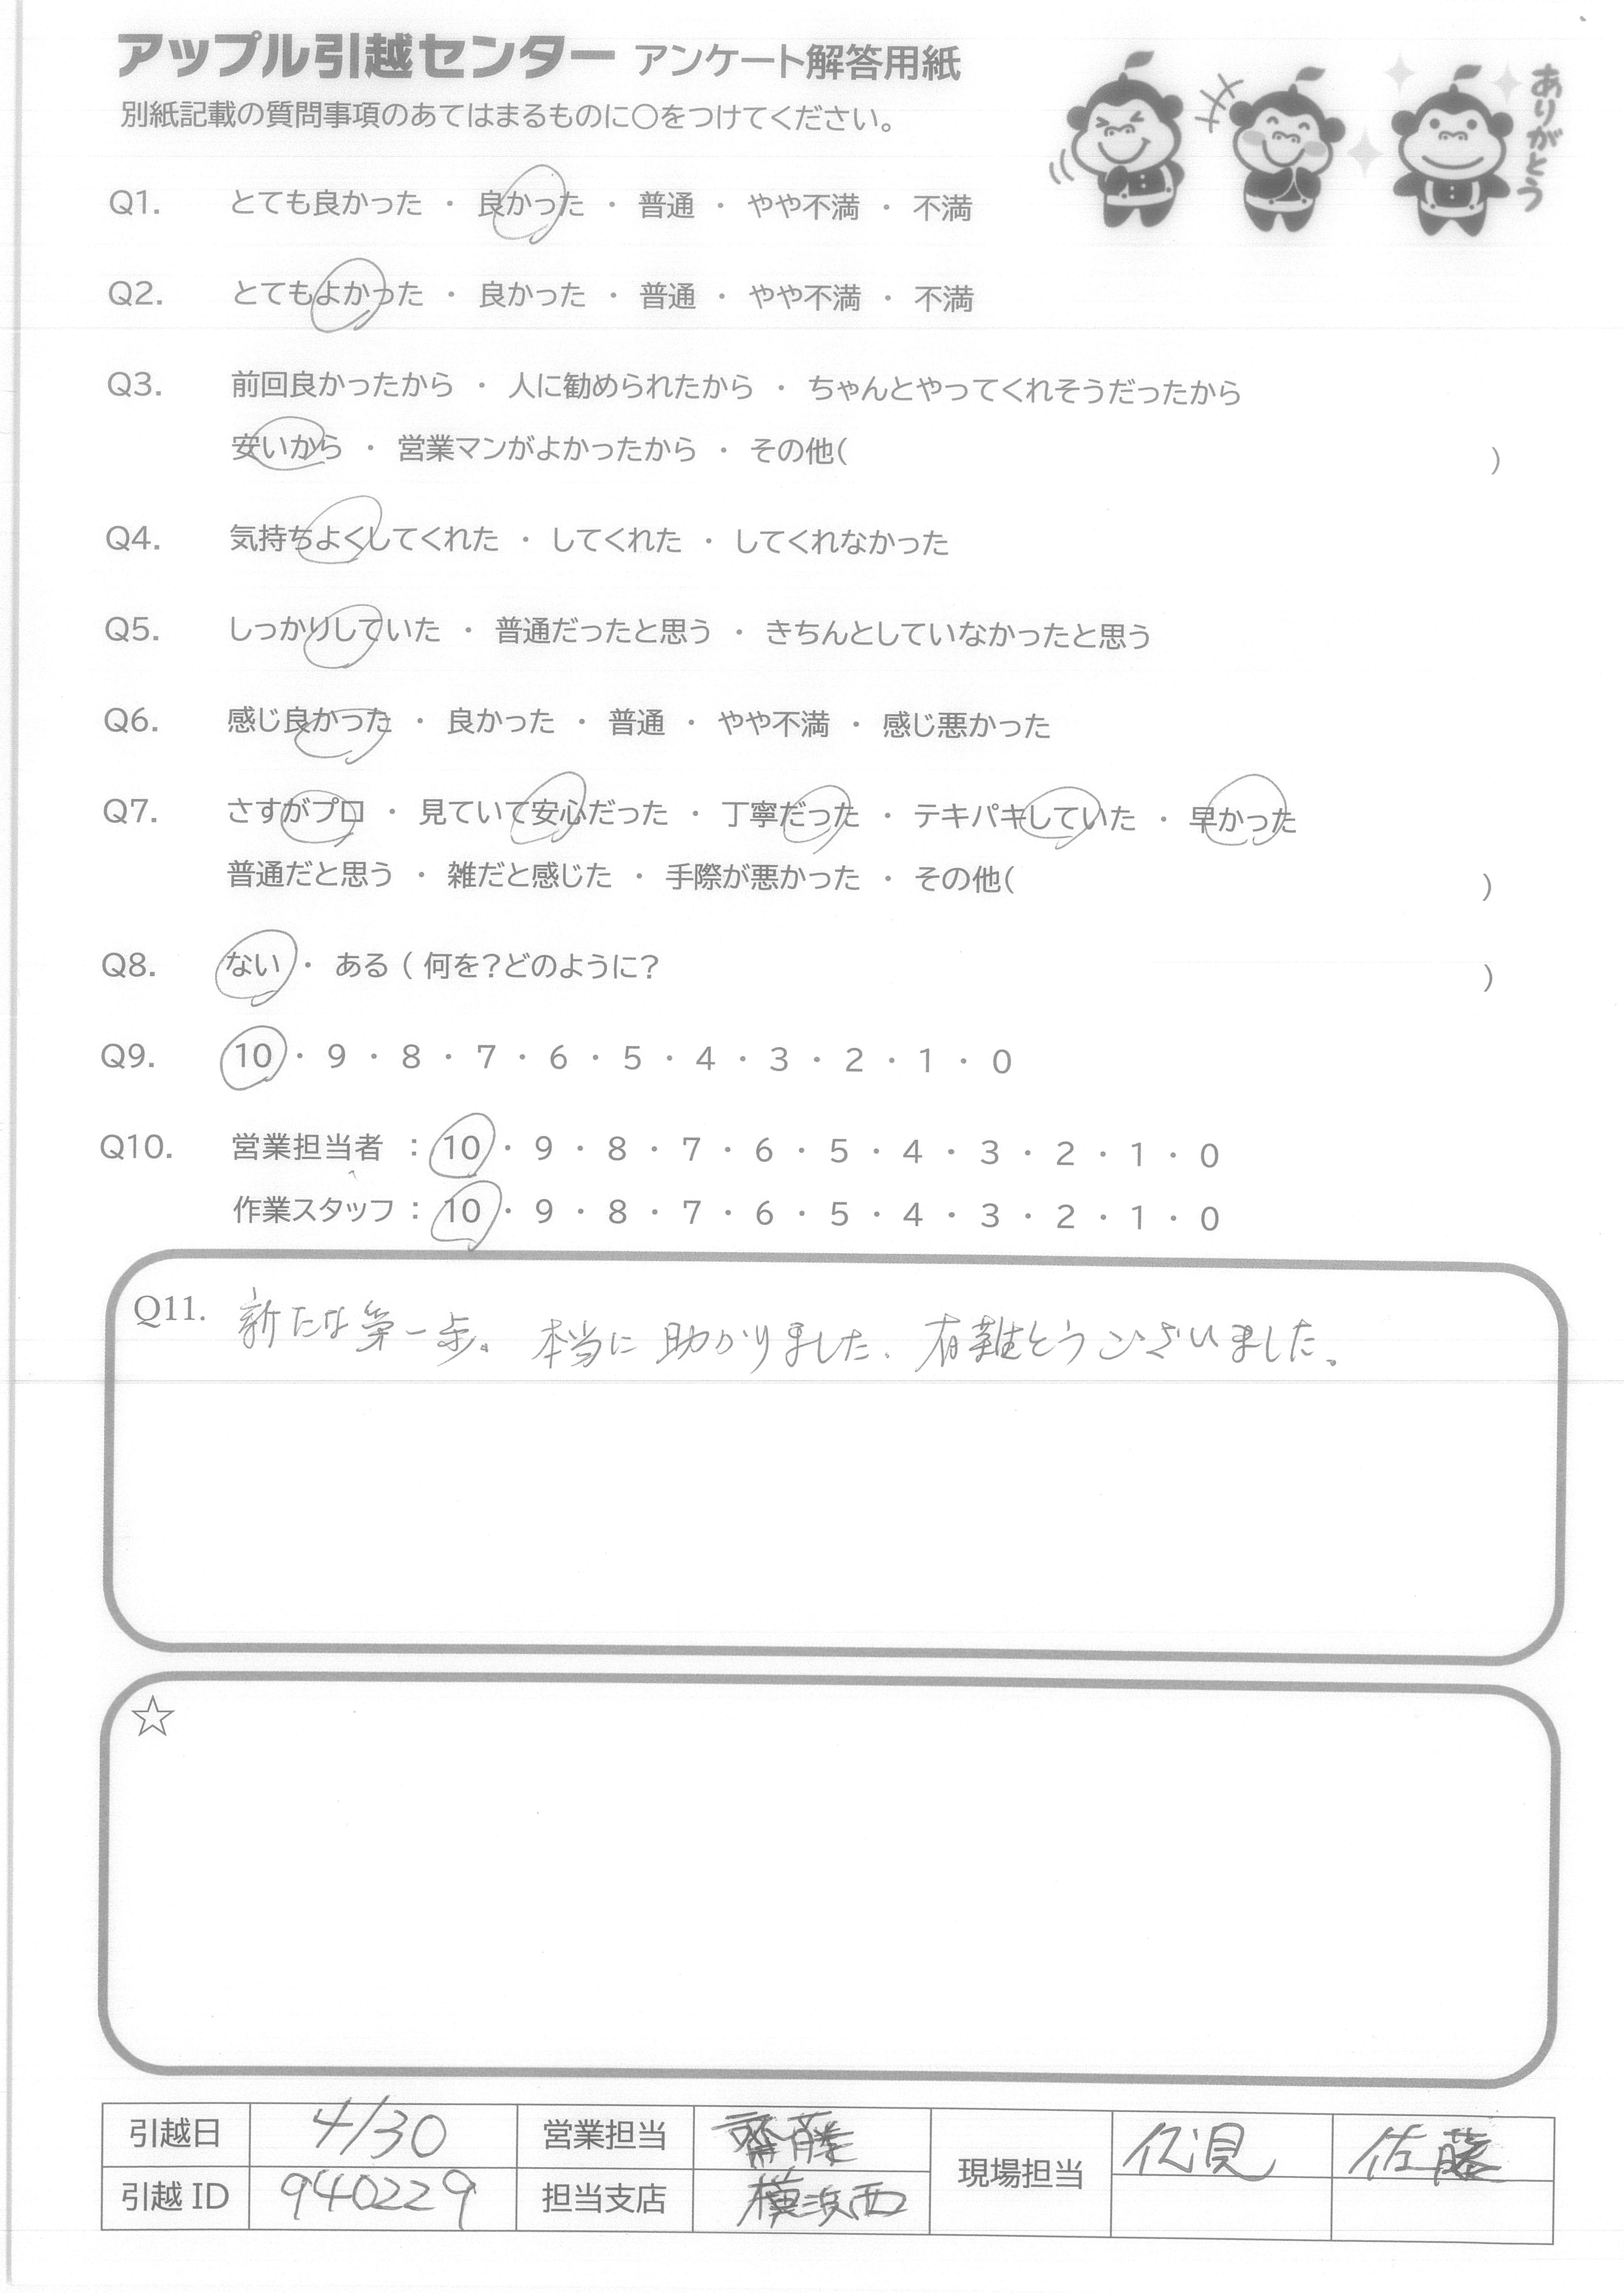 アップル引越センター アンケート解答用紙
別紙記載の質問事項のあてはまるものに○をつけてください。
ありがとう
Q1. とても良かった ・ 良かった ・ 普通 ・ やや不満 ・ 不満
Q2. とてもよかった ・ 良かった ・ 普通 ・ やや不満 ・ 不満
Q3. 前回良かったから ・ 人に勧められたから ・ ちゃんとやってくれそうだったから
安いから ・ 営業マンがよかったから ・ その他( )
Q4. 気持ちよくしてくれた ・ してくれた ・ してくれなかった
Q5. しっかりしていた ・ 普通だったと思う ・ きちんとしていなかったと思う
Q6. 感じ良かった ・ 良かった ・ 普通 ・ やや不満 ・ 感じ悪かった
Q7. さすがプロ ・ 見ていて安心だった ・ 丁寧だった ・ テキパキしていた ・ 早かった
普通だと思う ・ 雑だと感じた ・ 手際が悪かった ・ その他( )
Q8. ない ・ ある ( 何を?どのように? )
Q9. 10 ・ 9 ・ 8 ・ 7 ・ 6 ・ 5 ・ 4 ・ 3 ・ 2 ・ 1 ・ 0
Q10. 営業担当者 : 10 ・ 9 ・ 8 ・ 7 ・ 6 ・ 5 ・ 4 ・ 3 ・ 2 ・ 1 ・ 0
作業スタッフ : 10 ・ 9 ・ 8 ・ 7 ・ 6 ・ 5 ・ 4 ・ 3 ・ 2 ・ 1 ・ 0
Q11. 新たな第一歩。本当に助かりました。有難とうございました。
☆
引越日 4/30 営業担当 齋藤 現場担当 佐藤
引越 ID 940229 担当支店 横浜西